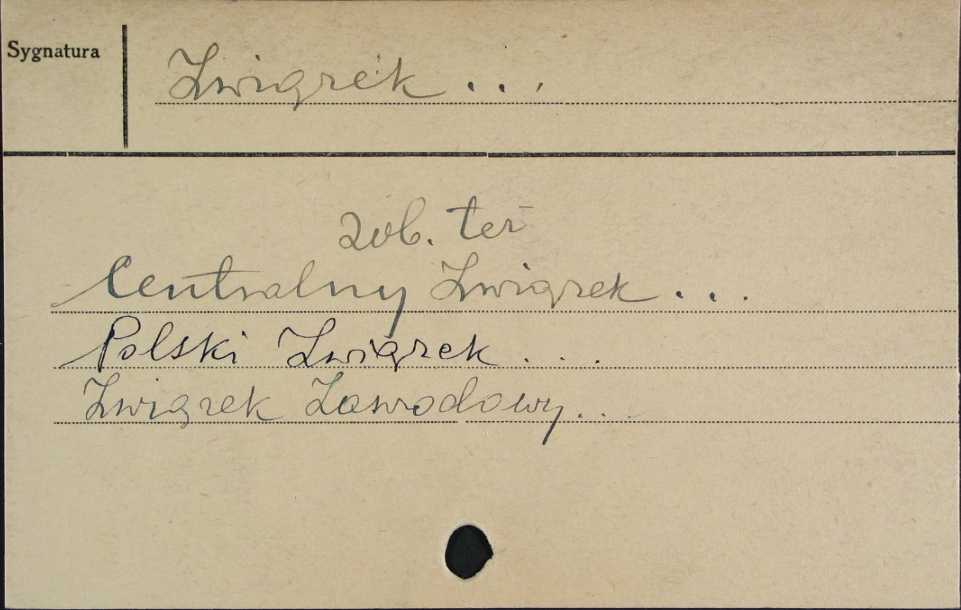 Sygnatura
Związek ...
zob. też
Centralny Związek ...
Polski Związek ...
Związek Zawodowy...